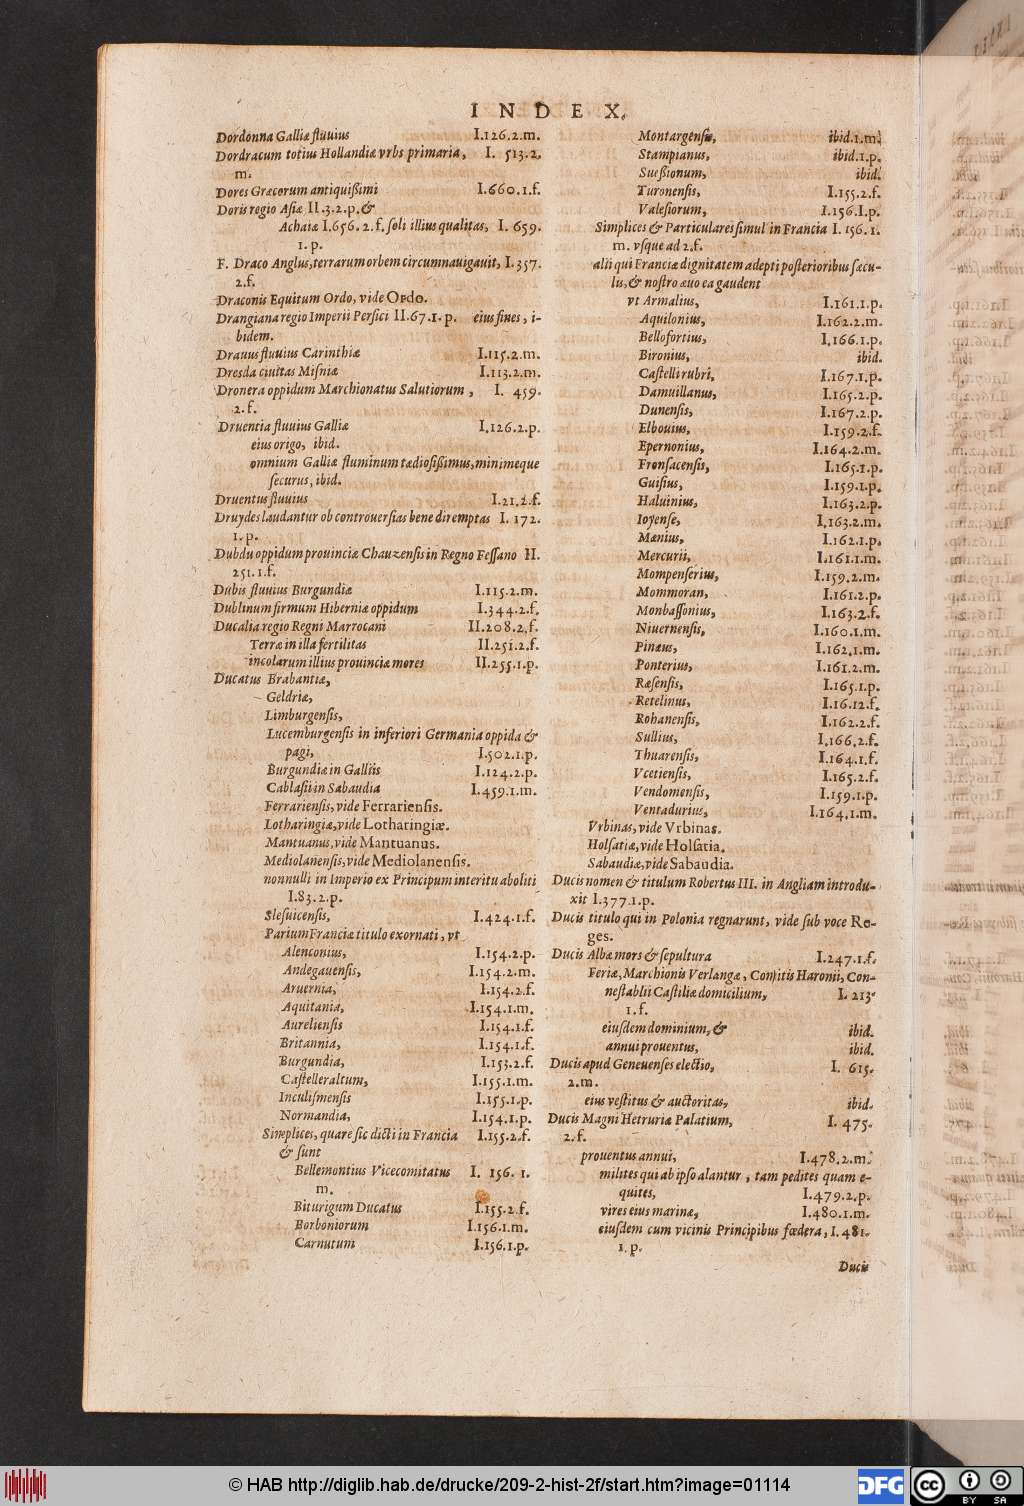 INDEX.
Dordonna Galliæ fluuius I.126.2.m.
Dordracum totius Hollandiæ vrbs primaria, I. 513.2.
m.
Dores Græcorum antiquißimi I.660.1.f.
Doris regio Asiæ II.3.2.p. &
Achaiæ I.656.2.f. soli illius qualitas, I. 659.
1.p.
F. Draco Anglus, terrarum orbem circumnauigauit, I.357.
2.f.
Draconis Equitum Ordo, vide Ordo.
Drangiana regio Imperii Persici II.67.1.p. eius fines, i-
bidem.
Drauus fluuius Carinthiæ I.115.2.m.
Dresda ciuitas Misniæ I.113.2.m.
Dronera oppidum Marchionatus Salutiorum, I. 459.
2.f.
Druentia fluuius Galliæ I.126.2.p.
eius origo, ibid.
omnium Galliæ fluminum tædiosißimus, minimeque
securus, ibid.
Druentus fluuius I.21.2.f.
Druydes laudantur ob controuersias bene diremptas I. 172.
1.p.
Dubdu oppidum prouinciæ Chauzensis in Regno Fessano II.
251.1.f.
Dubis fluuius Burgundiæ I.115.2.m.
Dublinum firmum Hiberniæ oppidum I.344.2.f.
Ducalia regio Regni Marrocani II.208.2.f.
Terræ in illa fertilitas II.251.2.f.
incolarum illius prouinciæ mores II.255.1.p.
Ducatus Brabantiæ,
Geldriæ,
Limburgensis,
Lucemburgensis in inferiori Germania oppida &
pagi, I.502.1.p.
Burgundiæ in Galliis I.124.2.p.
Cablasii in Sabaudia I.459.1.m.
Ferrariensis, vide Ferrariensis.
Lotharingiæ, vide Lotharingiæ.
Mantuanus, vide Mantuanus.
Mediolanensis, vide Mediolanensis.
nonnulli in Imperio ex Principum interitu aboliti
I.83.2.p.
Slesuicensis, I.424.1.f.
Parium Franciæ titulo exornati, vt
Alenconius, I.154.2.p.
Andegauensis, I.154.2.m.
Aruernia, I.154.2.f.
Aquitania, I.154.1.m.
Aureliensis I.154.1.f.
Britannia, I.154.1.f.
Burgundia, I.153.2.f.
Castelleraltum, I.155.1.m.
Inculismensis I.155.1.p.
Normandia, I.154.1.p.
Simplices, quare sic dicti in Francia I.155.2.f.
& sunt
Bellemontius Vicecomitatus I. 156. 1.
m.
Biturigum Ducatus I.155.2.f.
Borboniorum I.156.1.m.
Carnutum I.156.1.p.
Montargensis, ibid.1.m.
Stampianus, ibid.1.p.
Sueßionum, ibid.
Turonensis, I.155.2.f.
Valesiorum, I.156.1.p.
Simplices & Particulares simul in Francia I. 156. 1.
m. vsque ad 2.f.
alii qui Franciæ dignitatem adepti posterioribus sæcu-
lis, & nostro æuo ea gaudent
vt Armalius, I.161.1.p.
Aquilonius, I.162.2.m.
Bellofortius, I.166.1.p.
Bironius, ibid.
Castelli rubri, I.167.1.p.
Damuillanus, I.165.2.p.
Dunensis, I.167.2.p.
Elbouius, I.159.2.f.
Epernonius, I.164.2.m.
Fronsacensis, I.165.1.p.
Guisius, I.159.1.p.
Haluinius, I.163.2.p.
Ioyense, I.163.2.m.
Mænius, I.162.1.p.
Mercurii, I.161.1.m.
Mompenserius, I.159.2.m.
Mommoran, I.161.2.p.
Monbassonius, I.163.2.f.
Niuernensis, I.160.1.m.
Pinæus, I.162.1.m.
Ponterius, I.161.2.m.
Ræsensis, I.165.1.p.
Retelinus, I.16.12.f.
Rohanensis, I.162.2.f.
Sullius, I.166.2.f.
Thuarensis, I.164.1.f.
Vcetiensis, I.165.2.f.
Vendomensis, I.159.1.p.
Ventadurius, I.164.1.m.
Vrbinas, vide Vrbinas.
Holsatiæ, vide Holsatia.
Sabaudiæ, vide Sabaudia.
Ducis nomen & titulum Robertus III. in Angliam introdu-
xit I.377.1.p.
Ducis titulo qui in Polonia regnarunt, vide sub voce Re-
ges.
Ducis Albæ mors & sepultura I.247.1.f.
Feriæ, Marchionis Verlangæ, Comitis Haronii, Con-
nestablii Castiliæ domicilium, I. 213.
1.f.
eiusdem dominium, & ibid.
annui prouentus, ibid.
Ducis apud Geneuenses electio, I. 615.
2.m.
eius vestitus & auctoritas, ibid.
Ducis Magni Hetruriæ Palatium, I. 475.
2.f.
prouentus annui, I.478.2.m.
milites qui ab ipso alantur, tam pedites quam e-
quites, I.479.2.p.
vires eius marinæ, I.480.1.m.
eiusdem cum vicinis Principibus fœdera, I.481.
1.p.
Ducis
© HAB http://diglib.hab.de/drucke/209-2-hist-2f/start.htm?image=01114
DFG
cc
BY SA